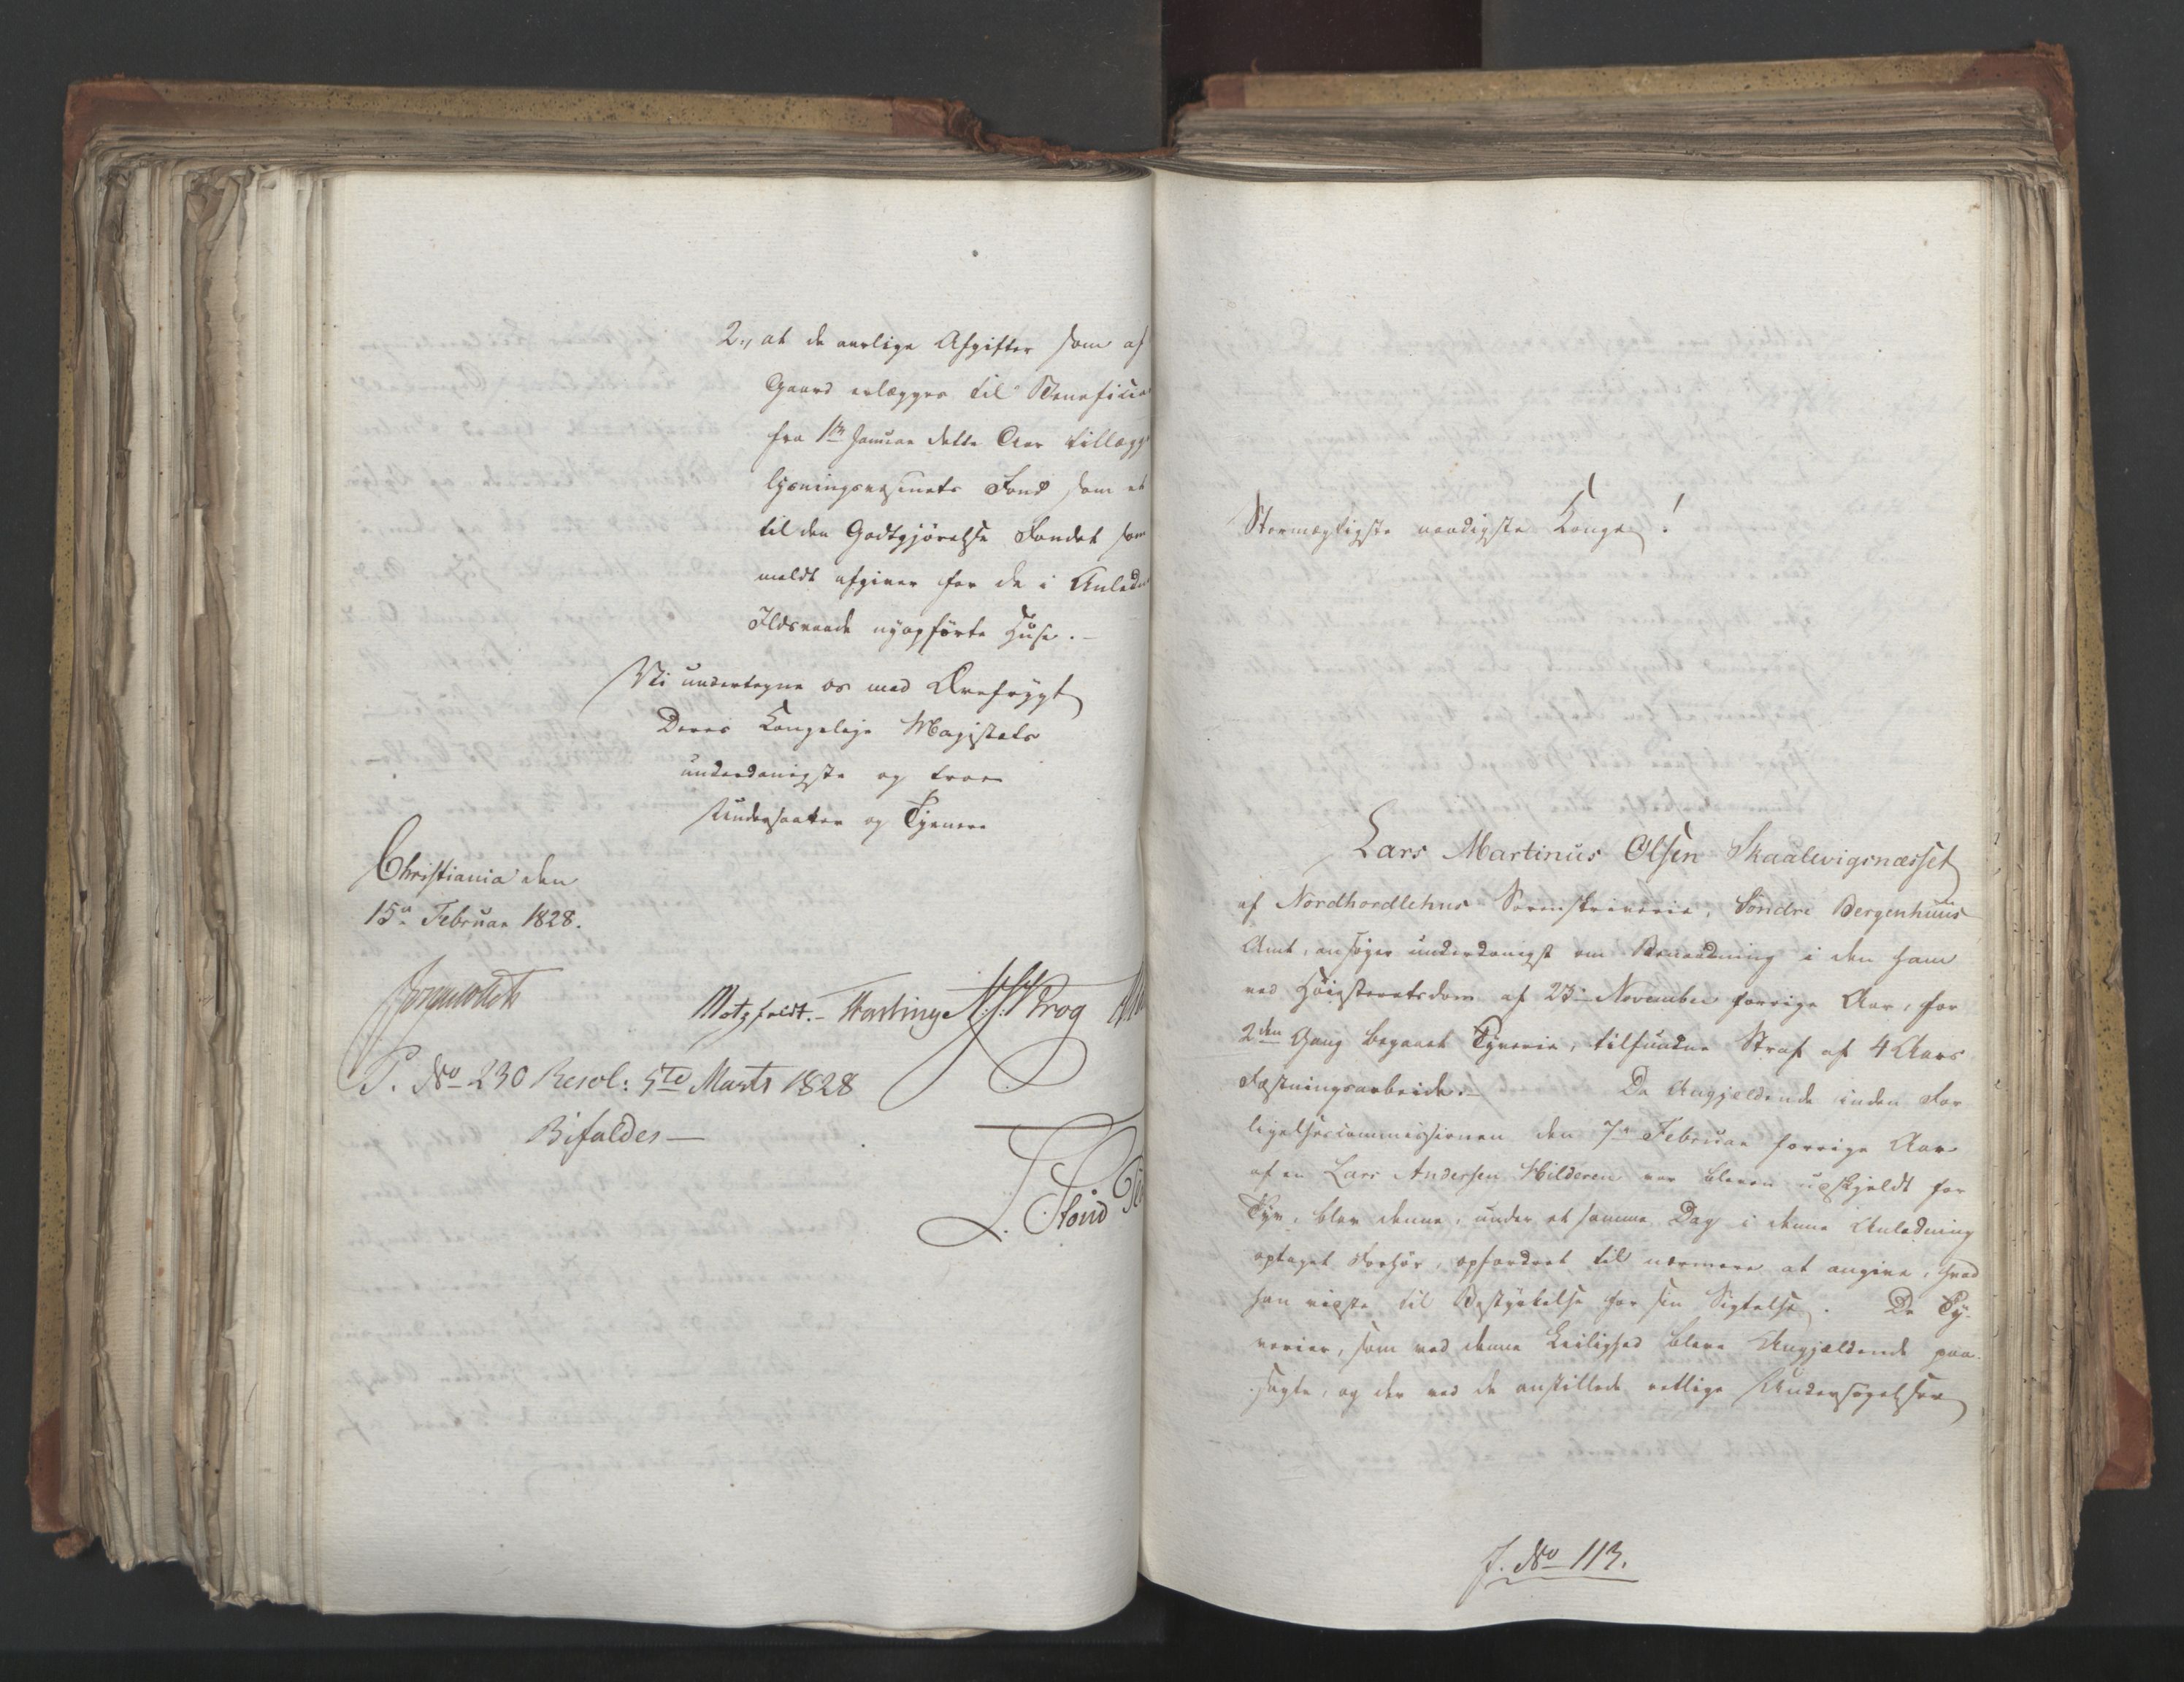 2., at de aarlige Afgifter som af
Gaard erlægges til Beneficia
fra 1ste Januar dette Aar tillægg
lysningsvæsenets Fond som et
til den Godtgjørelse Fondet som
meldt afgiver for de i Anledn
Ildsvaade nyopførte Huse.-
Vi undertegne os med Ærefrygt
Deres Kongelige Majestæts
underdanigste og troe
Undersaatter og Tjenere
Christiania den
15de Februar 1828.
Motzfeldt.- Krog
P. No 230 Resol: 5te Marts 1828
Bifaldes-
Stormægtigste naadigste Konge!
Lars Martinus Olsen Skaalevigsnæsset
af Nordhordlehns Sorenskriverie, Søndre Bergenhuus
Amt, ansøger underdanigst om Benaadning i den ham
ved Høiesteretsdom af 23de November forrige Aar, for
2den Gang begaaet Tyverie, tilfundne Straf af 4 Aars
Fæstningsarbeide.- Da Angjeldende inden For
ligelsescommissionen den 7de Februar forrige Aar
af en Lars Andersen Hilderen var bleven udskjeldt for
Tyv, blev denne, under et samme Dag i denne Anledning
optaget Forhør, opfordret til nærmere at angive, hvad
han vidste til Bestyrkelse for sin Sigtelse. De Ty-
verier, som ved denne Leilighed bleve Angjældende paa-
sagte, og der ved de anstillede retlige Undersøgelser
J. No 113.